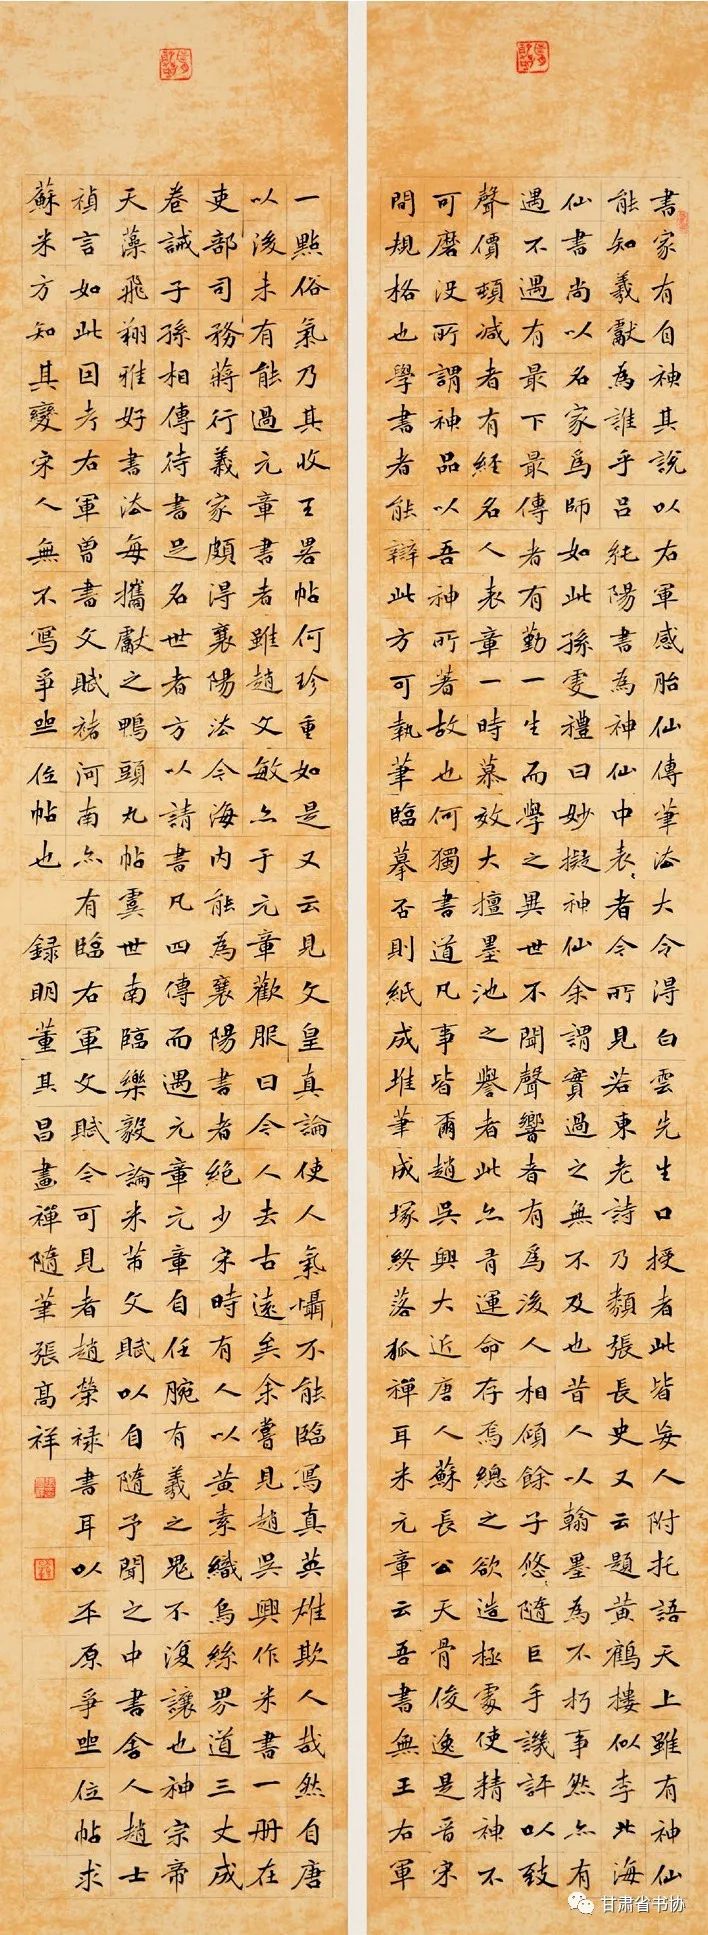 書家有自神其說以右軍感胎仙傳筆法大令得白雲先生口授者此皆妄人附托語天上雖有神仙
能知羲獻為誰乎呂純陽書為神仙中表〻者今所見若東老詩乃類張長史又云題黃鶴樓似李北海
仙書尚以名家為師如此孫雯禮曰妙擬神仙余謂實過之無不及也昔人以翰墨為不朽事然亦有
遇不遇有最下最傳者有勤一生而學之異世不聞聲響者有為後人相傾餘子悠隨巨手譏評以致
聲價頓減者有經名人表章一時慕效大擅墨池之譽者此亦有運命存焉總之欲造極處使精神不
可磨沒所謂神品以吾神所著故也何獨書道凡事皆爾趙吳興大近唐人蘇長公天骨俊逸是晉宋
間規格也學書者能辯此方可執筆臨摹否則紙成堆筆成塚終落狐禪耳米元章云吾書無王右軍
一點俗氣乃其收王畧帖何珍重如是又云見文皇真論使人氣懾不能臨寫真英雄欺人哉然自唐
以後未有能過元章書者雖趙文敏亦于元章歡服曰今人去古遠矣余嘗見趙吳興作米書一冊在
吏部司務蔣行義家頗得襄陽法今海內能為襄陽書者絕少宋時有人以黃素織烏絲界道三丈成
卷誡子孫相傳待書足名世者方以請書凡四傳而遇元章元章自任腕有羲之鬼不復讓也神宗帝
天藻飛翔雅好書法每攜獻之鴨頭丸帖虞世南臨樂毅論米芾文賦以自隨予聞之中書舍人趙士
禎言如此因考右軍曾書文賦褚河南亦有臨右軍文賦今可見者趙榮祿書耳以平原爭坐位帖求
蘇米方知其變宋人無不寫爭坐位帖也 錄明董其昌畫禪隨筆張高祥
甘肃省书协